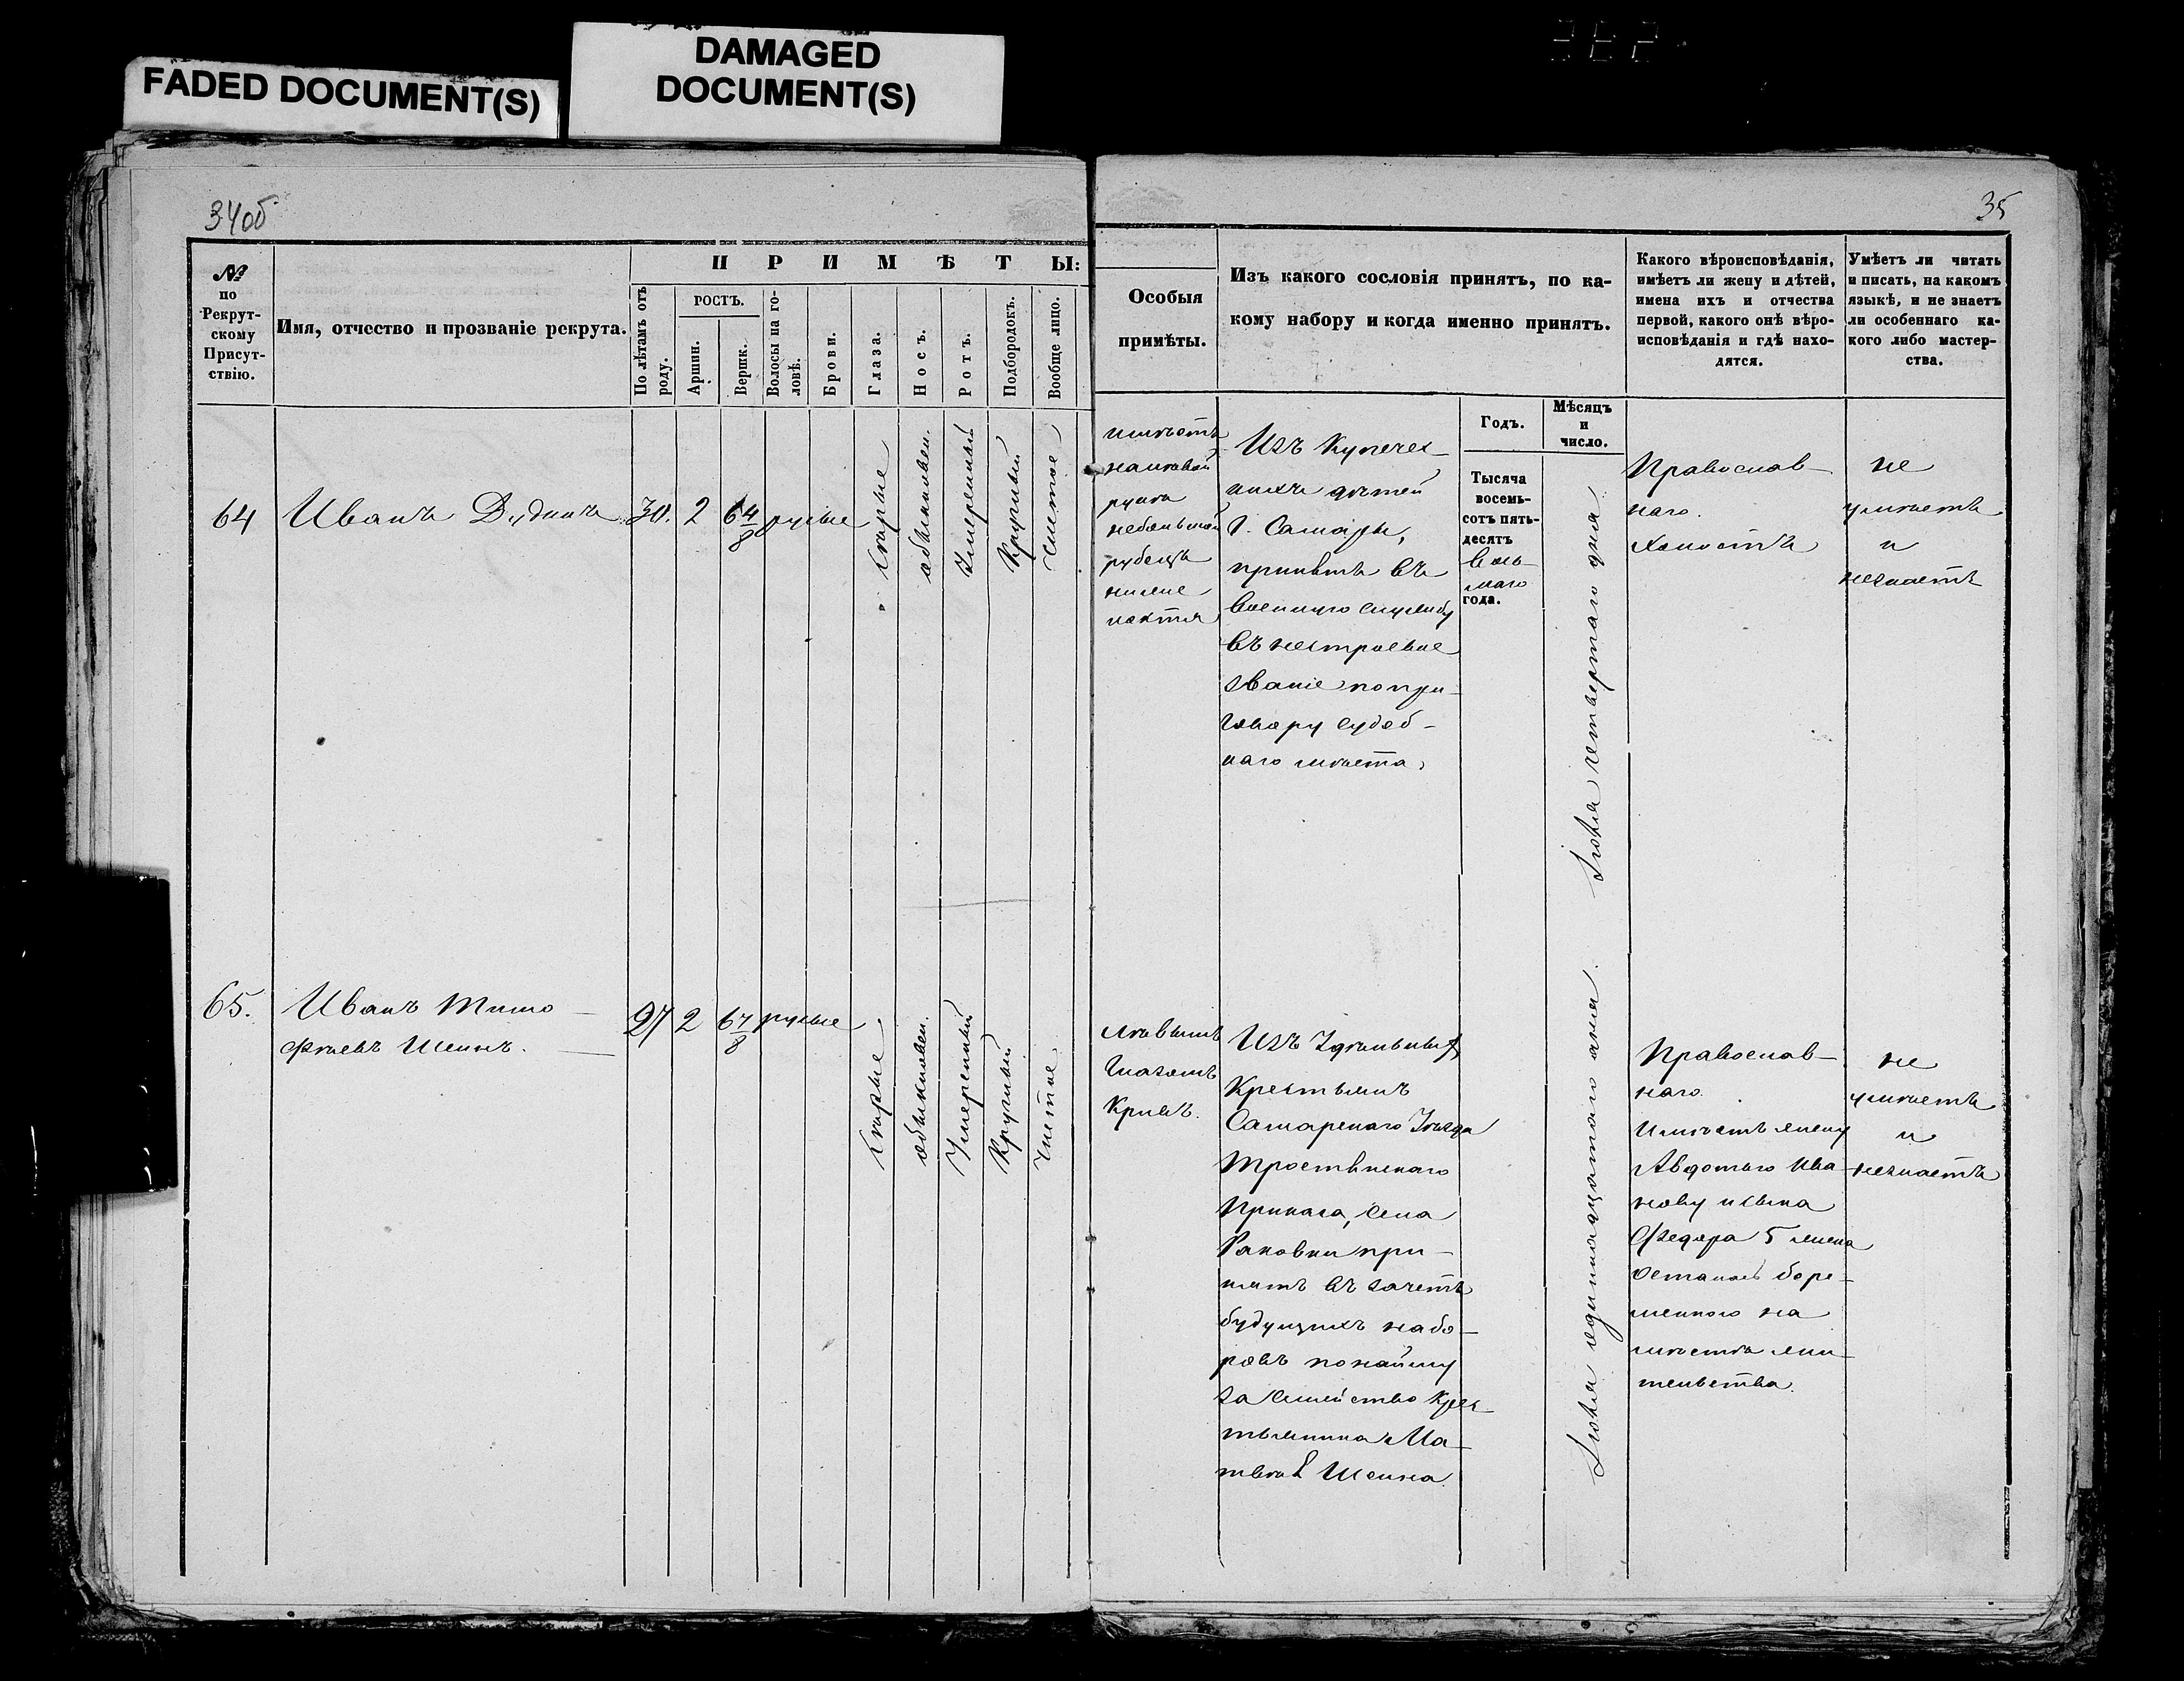 FADED DOCUMENT(S)
DAMAGED
DOCUMENT(S)
34об
35
№
по
Рекрут-
скому
Присут-
ствію.
Имя, отчество и прозваніе рекрута.
ПРИМѢТЫ:
По лѣтамъ отъ
роду.
РОСТЪ.
Аршин.
Вершк.
Волосы на го-
ловѣ.
Брови.
Глаза.
Носъ.
Ротъ.
Подбородокъ.
Вообще лицо.
Особыя
примѣты.
Изъ какого сословія принятъ, по ка-
кому набору и когда именно принятъ.
Какого вѣроисповѣданія,
имѣетъ ли жену и дѣтей,
имена ихъ и отчества
первой, какого онѣ вѣро-
исповѣданія и гдѣ нахо-
дятся.
Умѣетъ ли читать
и писать, на какомъ
языкѣ, и не знаетъ
ли особеннаго ка-
кого либо мастер-
ства.
Годъ.
Мѣсяцъ
и
число.
64
Иванъ Дудинъ
30.
2
6 4/8
русые
карые
обыкновен.
Умеренный
Круглый
чистое
имѣетъ
на левой
руке
небольшой
рубецъ
ниже
локтя
Изъ Купечес-
кихъ детей
г. Самары,
принятъ въ
военную службу
въ нестроевое
званіе по при-
говору судеб-
наго мѣста,
Тысяча
восемь-
сотъ пять-
десятъ
вось-
маго
года.
Іюля четвертаго дня
Православ-
наго.
Холостъ
не
умѣетъ
и
незнаетъ
65.
Иванъ Тимо-
фѣевъ Шеинъ.
27
2
6 7/8
русые
карые
обыкновен.
Умеренный
Круглый
чистое
лѣвымъ
глазомъ
кривъ.
Изъ Удѣльныхъ
Крестьянъ
Самарскаго Уѣзда
Тростянскаго
Приказа, села
Раковки при-
нятъ въ зачетъ
будущихъ набо-
ровъ по найму
за семейство Крес-
тьянина Ма-
твѣя Шеина.
Іюля одиннадцатаго дня.
Православ-
наго.
Имѣетъ жену
Авдотью Ива-
нову и сына
Федора 5 жена
осталась бере-
менною на
мѣстѣ жи-
тельства.
не
умѣетъ
и
незнаетъ